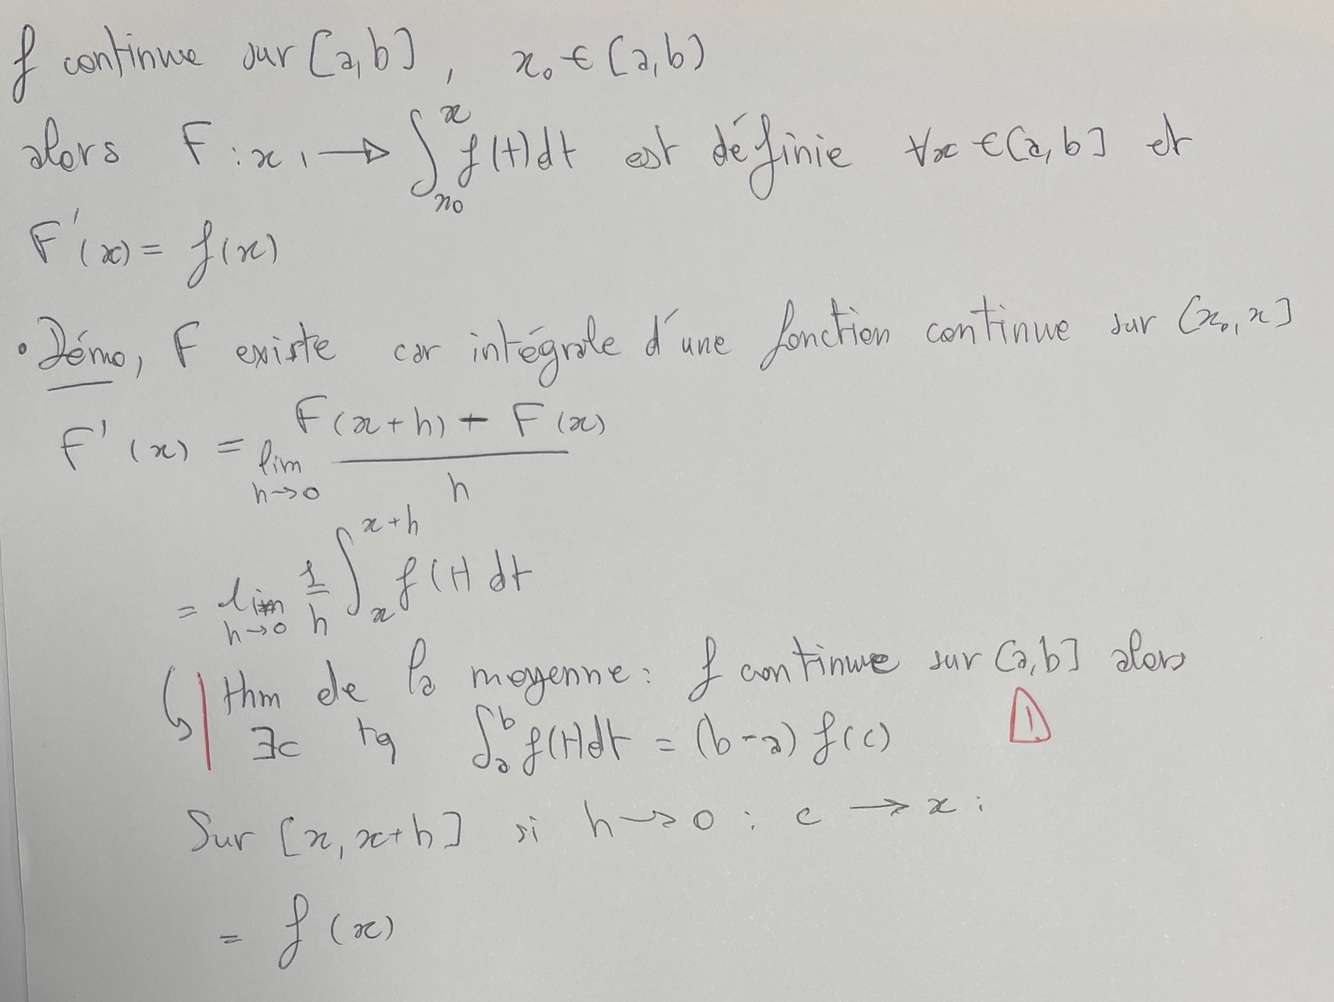 f continue sur [a,b], x₀ ∈ [a,b]
alors F : x ↦ ∫_{x₀}^{x} f(t)dt est définie ∀x ∈ [a,b] et
F'(x) = f(x)
• Démo, F existe car intégrale d'une fonction continue sur [x₀,x]
F'(x) = lim_{h→0} (F(x+h) - F(x))/h
= lim_{h→0} 1/h ∫_{x}^{x+h} f(t) dt
↳ thm de la moyenne : f continue sur [a,b] alors
∃c tq ∫_{a}^{b} f(t)dt = (b-a) f(c) ⚠
Sur [x, x+h] si h→0 : c → x :
= f(x)